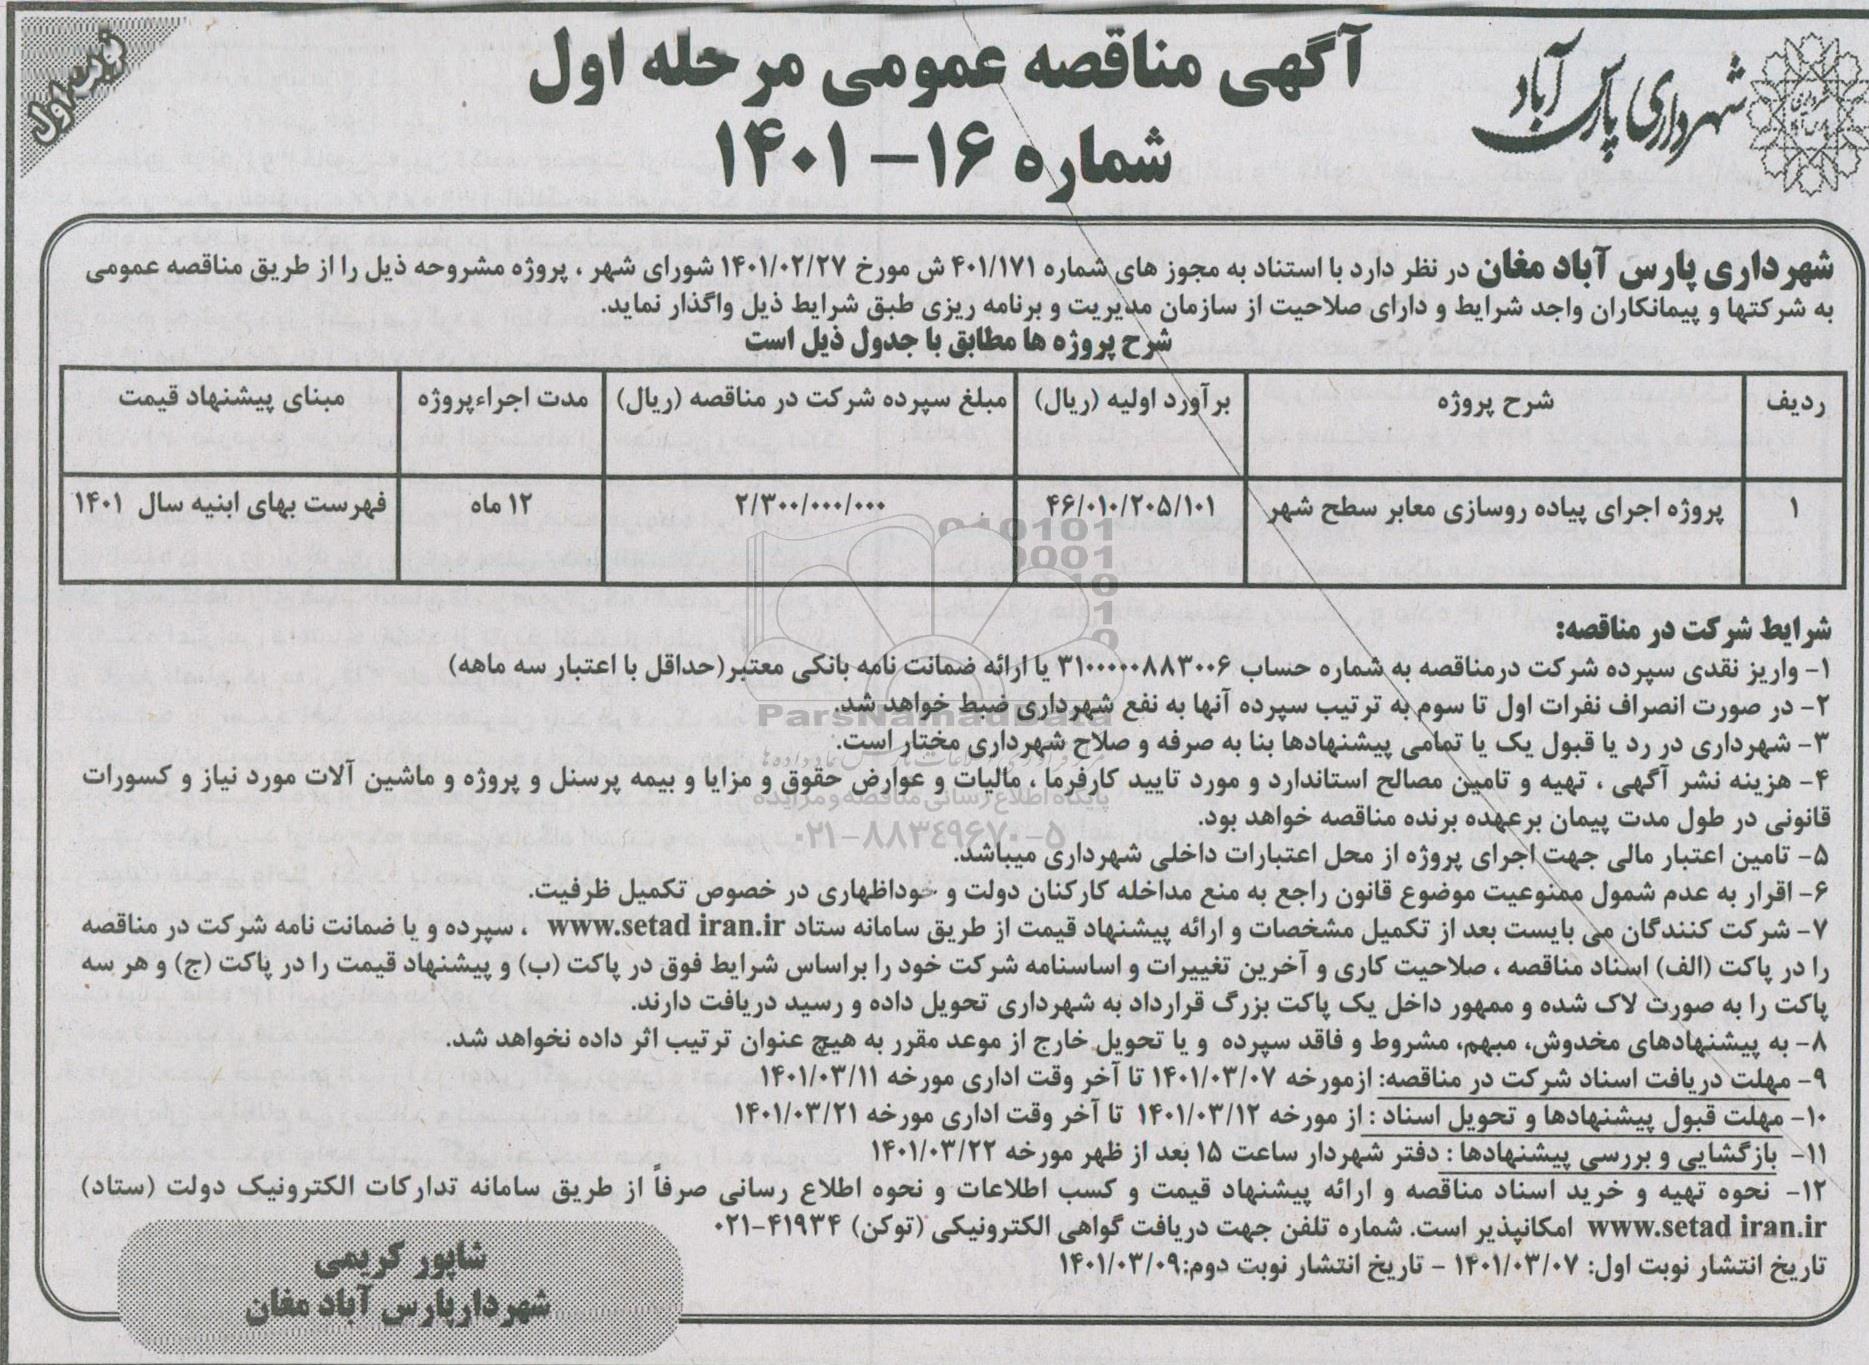 شهرداری پارس آباد
نوبت اول
آگهی مناقصه عمومی مرحله اول
شماره ۱۶- ۱۴۰۱
شهرداری پارس آباد مغان در نظر دارد با استناد به مجوز های شماره ۴۰۱/۱۷۱ ش مورخ ۱۴۰۱/۰۲/۲۷ شورای شهر ، پروژه مشروحه ذیل را از طریق مناقصه عمومی
به شرکتها و پیمانکاران واجد شرایط و دارای صلاحیت از سازمان مدیریت و برنامه ریزی طبق شرایط ذیل واگذار نماید.
شرح پروژه ها مطابق با جدول ذیل است
ردیف شرح پروژه برآورد اولیه (ریال) مبلغ سپرده شرکت در مناقصه (ریال) مدت اجراءپروژه مبنای پیشنهاد قیمت
۱ پروژه اجرای پیاده روسازی معابر سطح شهر ۴۶/۰۱۰/۲۰۵/۱۰۱ ۲/۳۰۰/۰۰۰/۰۰۰ ۱۲ ماه فهرست بهای ابنیه سال ۱۴۰۱
شرایط شرکت در مناقصه:
۱- واریز نقدی سپرده شرکت درمناقصه به شماره حساب ۳۱۰۰۰۰۰۸۸۳۰۰۶ یا ارائه ضمانت نامه بانکی معتبر(حداقل با اعتبار سه ماهه)
۲- در صورت انصراف نفرات اول تا سوم به ترتیب سپرده آنها به نفع شهرداری ضبط خواهد شد.
۳- شهرداری در رد یا قبول یک یا تمامی پیشنهادها بنا به صرفه و صلاح شهرداری مختار است.
۴- هزینه نشر آگهی ، تهیه و تامین مصالح استاندارد و مورد تایید کارفرما ، مالیات و عوارض حقوق و مزایا و بیمه پرسنل و پروژه و ماشین آلات مورد نیاز و کسورات
قانونی در طول مدت پیمان برعهده برنده مناقصه خواهد بود.
۵- تامین اعتبار مالی جهت اجرای پروژه از محل اعتبارات داخلی شهرداری میباشد.
۶- اقرار به عدم شمول ممنوعیت موضوع قانون راجع به منع مداخله کارکنان دولت و خوداظهاری در خصوص تکمیل ظرفیت.
۷- شرکت کنندگان می بایست بعد از تکمیل مشخصات و ارائه پیشنهاد قیمت از طریق سامانه ستاد www.setad iran.ir ، سپرده و یا ضمانت نامه شرکت در مناقصه
را در پاکت (الف) اسناد مناقصه ، صلاحیت کاری و آخرین تغییرات و اساسنامه شرکت خود را براساس شرایط فوق در پاکت (ب) و پیشنهاد قیمت را در پاکت (ج) و هر سه
پاکت را به صورت لاک شده و ممهور داخل یک پاکت بزرگ قرارداد به شهرداری تحویل داده و رسید دریافت دارند.
۸- به پیشنهادهای مخدوش، مبهم، مشروط و فاقد سپرده و یا تحویل خارج از موعد مقرر به هیچ عنوان ترتیب اثر داده نخواهد شد.
۹- مهلت دریافت اسناد شرکت در مناقصه: ازمورخه ۱۴۰۱/۰۳/۰۷ تا آخر وقت اداری مورخه ۱۴۰۱/۰۳/۱۱
۱۰- مهلت قبول پیشنهادها و تحویل اسناد : از مورخه ۱۴۰۱/۰۳/۱۲ تا آخر وقت اداری مورخه ۱۴۰۱/۰۳/۲۱
۱۱- بازگشایی و بررسی پیشنهادها : دفتر شهردار ساعت ۱۵ بعد از ظهر مورخه ۱۴۰۱/۰۳/۲۲
۱۲- نحوه تهیه و خرید اسناد مناقصه و ارائه پیشنهاد قیمت و کسب اطلاعات و نحوه اطلاع رسانی صرفاً از طریق سامانه تدارکات الکترونیک دولت (ستاد)
www.setad iran.ir امکانپذیر است. شماره تلفن جهت دریافت گواهی الکترونیکی (توکن) ۴۱۹۳۴-۰۲۱
تاریخ انتشار نوبت اول: ۱۴۰۱/۰۳/۰۷ - تاریخ انتشار نوبت دوم:۱۴۰۱/۰۳/۰۹
شاپور کریمی
شهردارپارس آباد مغان
ParsNamadData
پایگاه اطلاع رسانی مناقصه و مزایده
۰۲۱-۸۸۳۴۹۶۷۰-۵